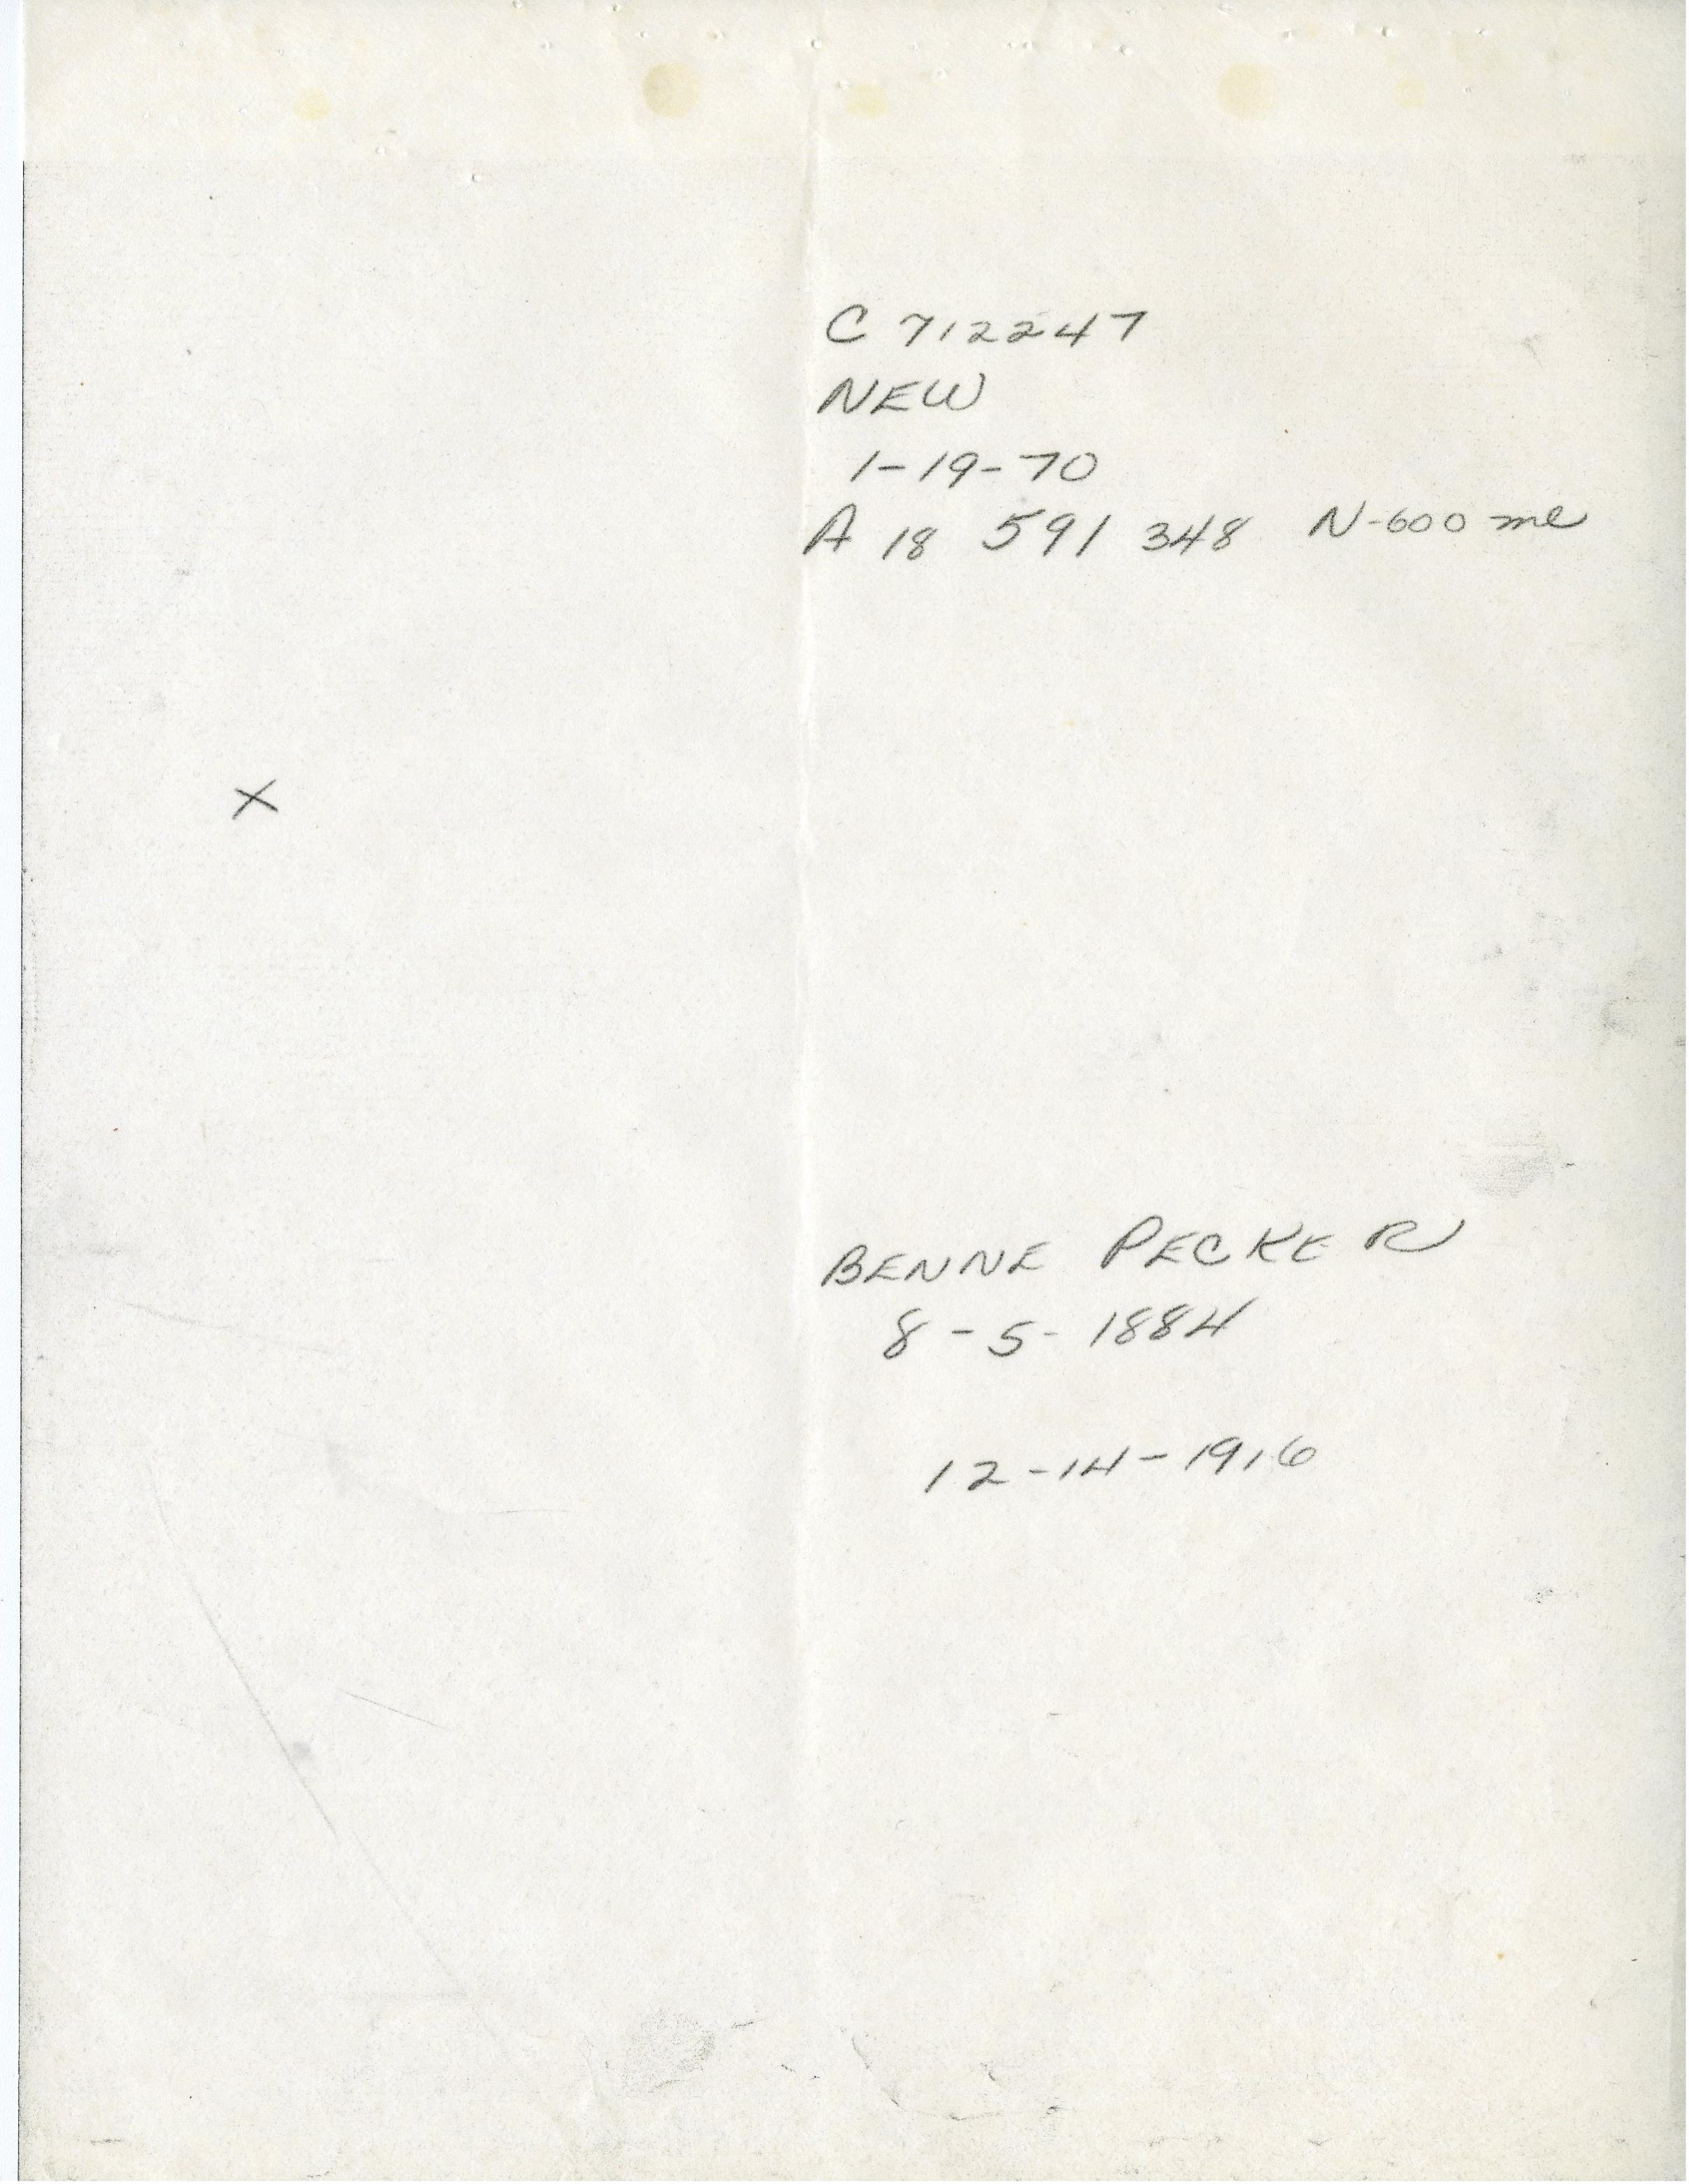 C 712247
NEW
1-19-70
A 18 591 348 N-600 me
X
BENNE PECKER
8-5-1884
12-14-1916